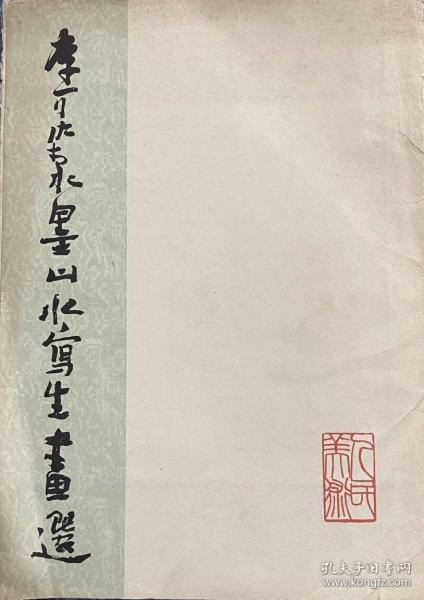 李可染水墨山水寫生畫選
人民
美術
孔夫子旧书网
kongfz.com